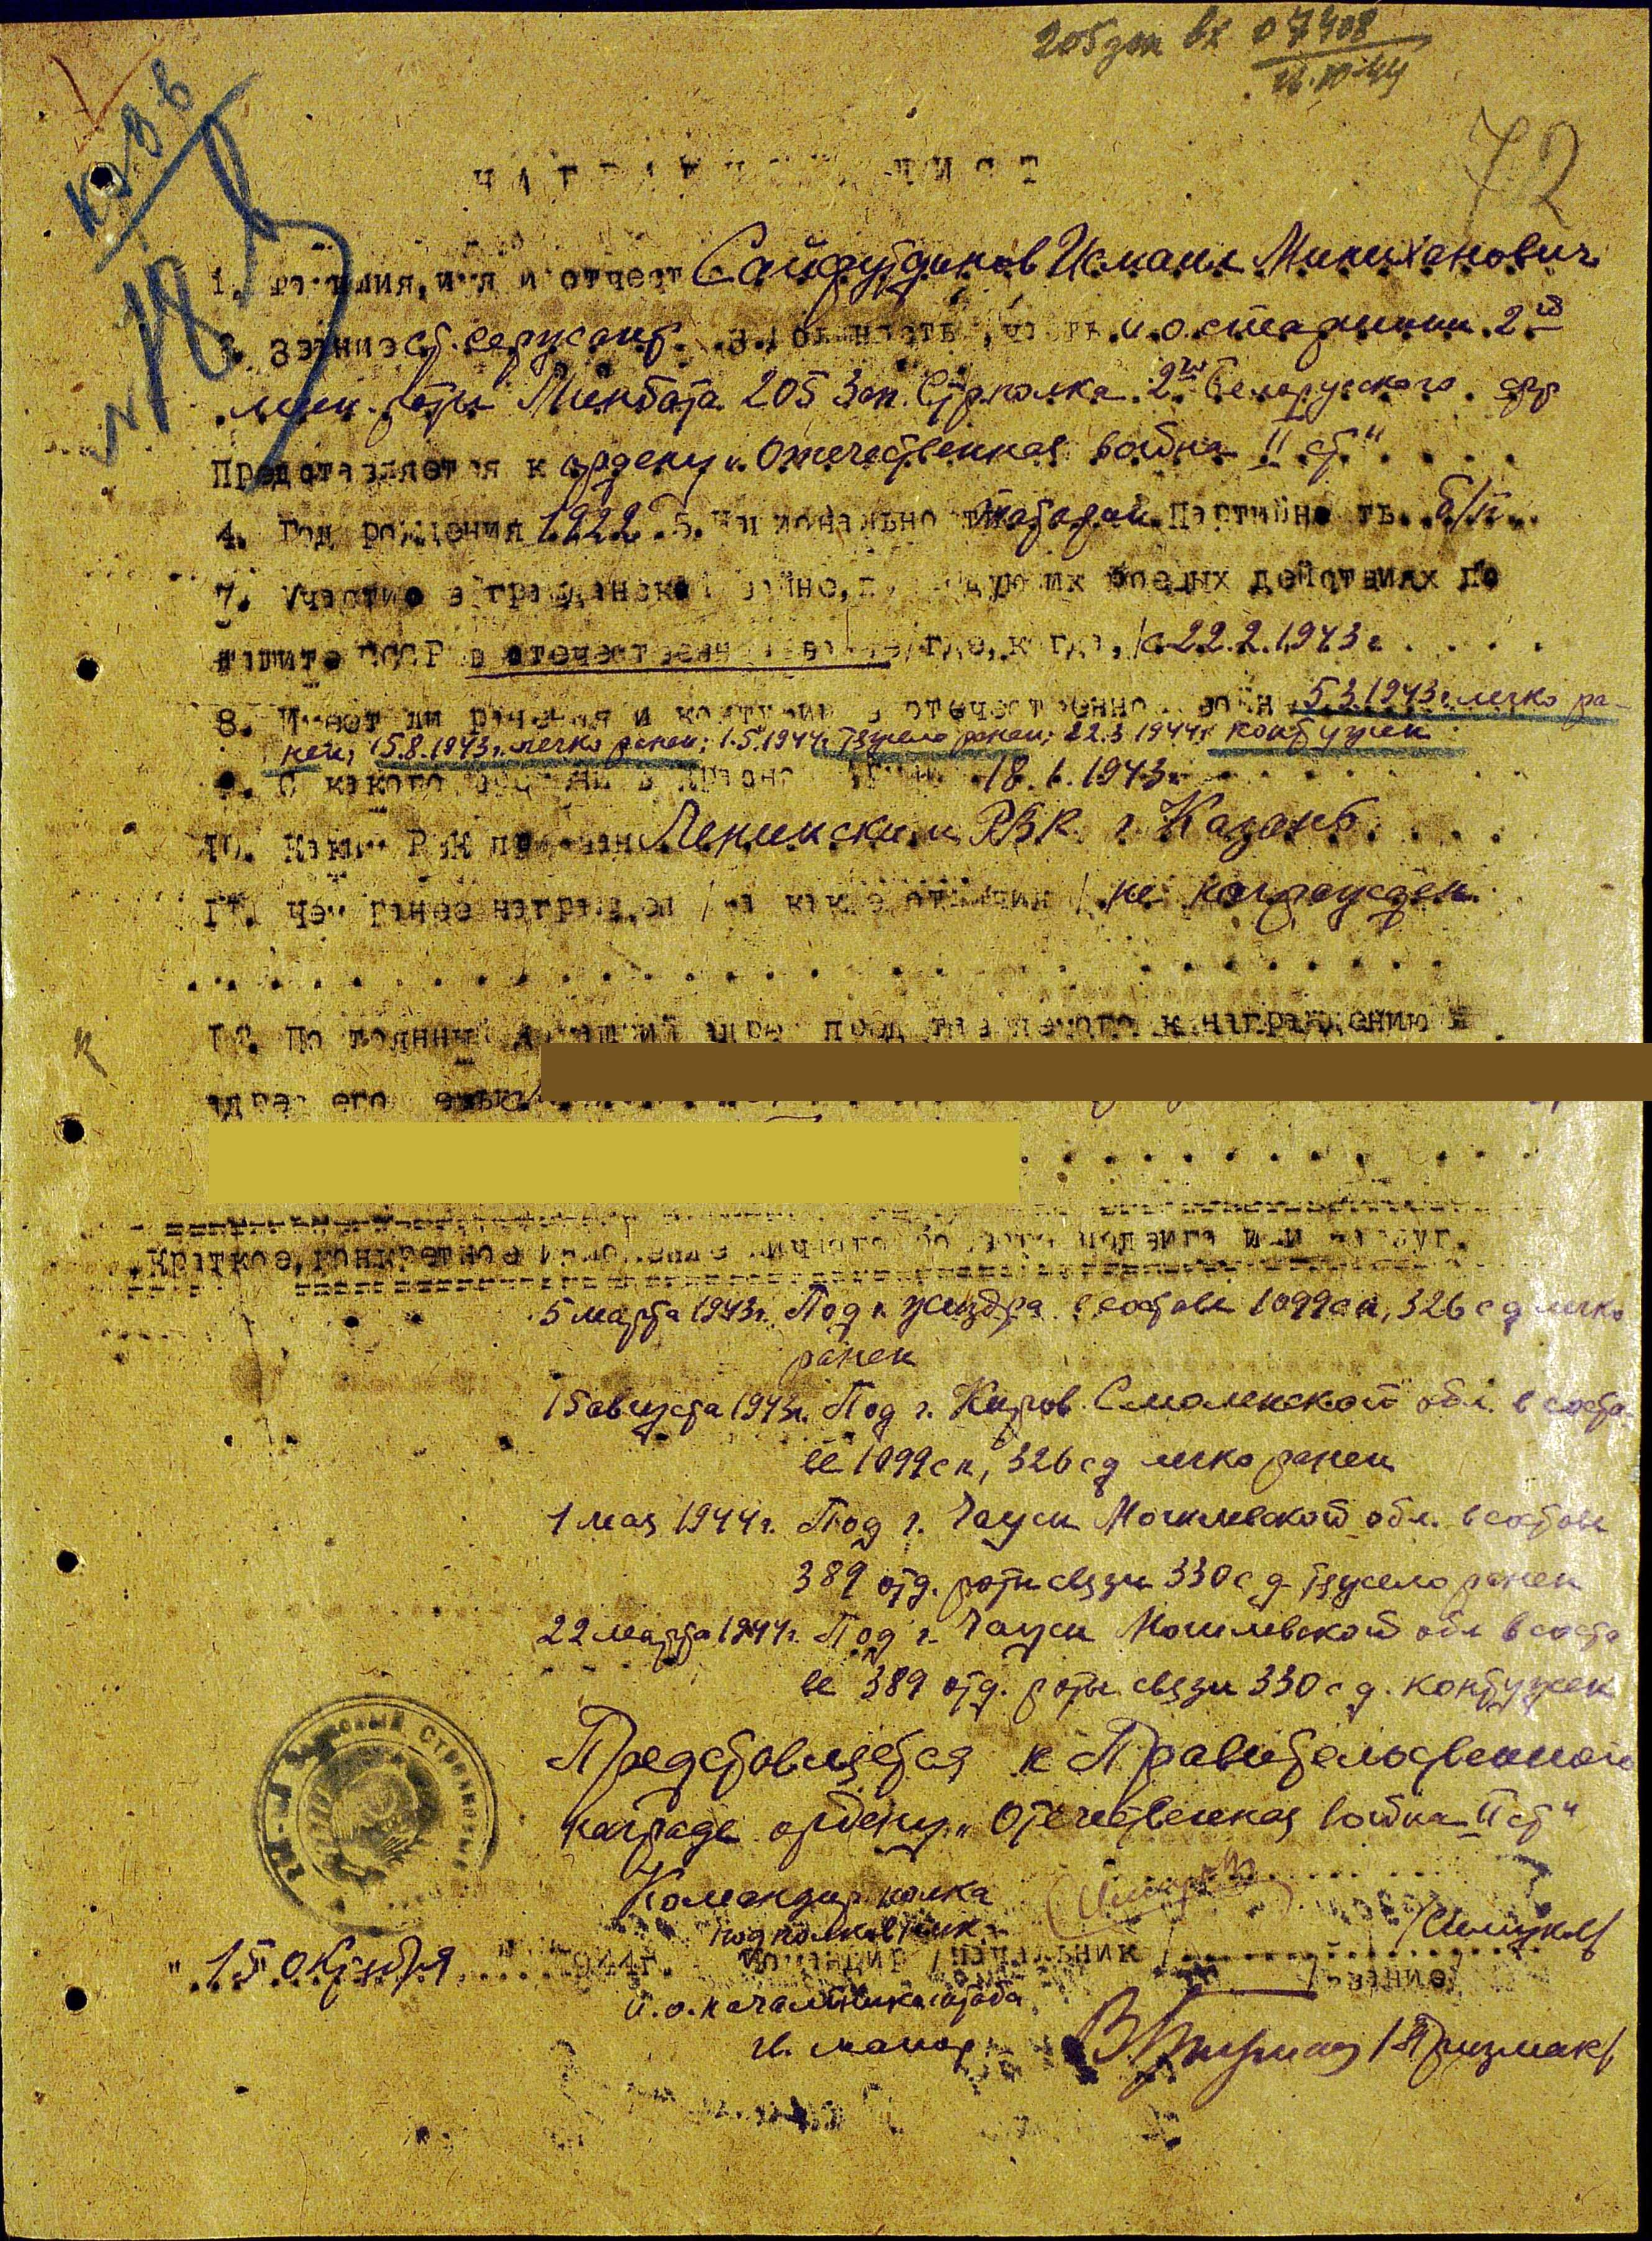 205 зап вх 07408
16.10.44
72
НАГРАДНОЙ ЛИСТ
1. Фамилия, имя и отчест Сайфутдинов Исмаил Миниханович
2. Звание ст. сержант. 3. Должность, часть и.о. старшины 2й
мин. роты Минбата 205 Зап. Стр. полка 2го Белорусского фр
Представляется к ордену „Отечественная война II ст"
4. Год рождения 1922. 5. Национальность татарин. Партийность б/п.
7. Участие в гражданской войне, последующих боевых действиях по
защите СССР в отечественной войне /где, когда,/ с 22.2.1943 г
8. Имеет ли ранения и контузии в отечественной войне 5.3.1943г. легко ра-
нен; 15.8.1943г. легко ранен; 1.5.1944г. тяжело ранен; 22.3.1944г. контужен
9. С какого времени в Красной Армии 18.1.1943г.
10. Каким РВК призван Ленинским РВК г. Казань
11. Чем ранее награжден /за какие отличия/ не награжден.
12. Постоянный домашний адрес представляемого к награждению и
адрес его семьи
Краткое, конкретное изложение личного боевого подвига или заслуг.
5 марта 1943г. Под г. Жиздра в составе 1099 сп, 326 с д легко
ранен
15 августа 1943г. Под г. Киров Смоленской обл. в соста-
ве 1099 с п, 326 с д легко ранен
1 мая 1944г. Под г. Чаусы Могилевской обл. в составе
389 отд. роты связи 330 с д тяжело ранен
22 марта 1944г. Под г. Чаусы Могилевской обл в соста
ве 389 отд. роты связи 330 с д. контужен
Представляется к Правительственной
награде ордену „Отечественная война II ст"
Командир полка
подполковник
"15" октября 1944г. Командир /начальник/
/звание/
и.о. начальника штаба
гв. майор /Призмак/